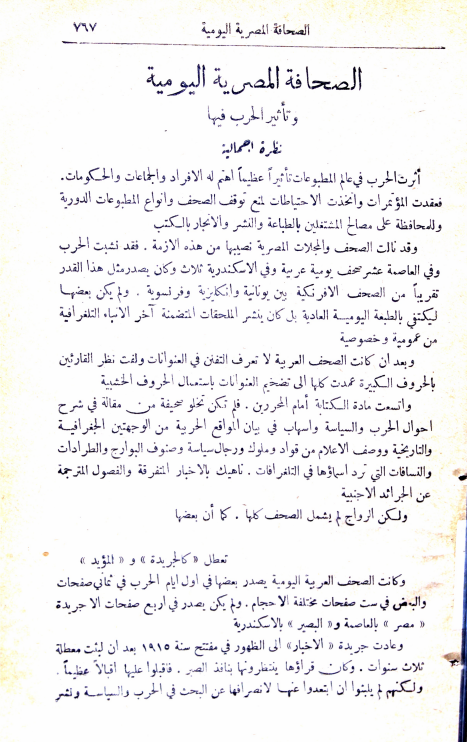 الصحافة المصرية اليومية ٧٦٧
الصحافة المصرية اليومية
وتأثير الحرب فيها
نظرة اجمالية
أثرت الحرب في عالم المطبوعات تأثيراً عظيماً اهتم له الافراد والجماعات والحكومات.
فعقدت المؤتمرات واتخذت الاحتياطات لمنع توقف الصحف وانواع المطبوعات الدورية
وللمحافظة على مصالح المشتغلين بالطباعة والنشر والاتجار بالكتب
وقد نالت الصحف والمجلات المصرية نصيبها من هذه الازمة. فقد نشبت الحرب
وفي العاصمة عشر صحف يومية عربية وفي الاسكندرية ثلاث وكان يصدر مثل هذا القدر
تقريباً من الصحف الافرنكية بين يونانية وانكليزية وفرنسوية. ولم يكن بعضها
ليكتفي بالطبعة اليومية العادية بل كان ينشر الملحقات المتضمنة آخر الانباء التلغرافية
من عمومية وخصوصية
وبعد ان كانت الصحف العربية لا تعرف التفنن في العنوانات ولفت نظر القارئين
بالحروف الكبيرة عمدت كلها الى تضخيم العنوانات باستعمال الحروف الخشبية
واتسعت مادة الكتابة أمام المحررين. فلم تكن تخلو صحيفة من مقالة في شرح
احوال الحرب والسياسة واسهاب في بيان المواقع الحربية من الوجهتين الجغرافية
والتاريخية ووصف الاعلام من قواد وملوك ورجال سياسة وصنوف البوارج والطرادات
والنسافات التي ترد اسماؤها في التلغرافات. ناهيك بالاخبار المتفرقة والفصول المترجمة
عن الجرائد الاجنبية
ولكن الرواج لم يشمل الصحف كلها. كما أن بعضها
تعطل «كالجريدة» و «المؤيد»
وكانت الصحف العربية اليومية يصدر بعضها في اول ايام الحرب في ثماني صفحات
والبعض في ست صفحات مختلفة الاحجام. ولم يكن يصدر في اربع صفحات الا جريدة
«مصر» بالعاصمة و«البصير» بالاسكندرية
وعادت جريدة «الاخبار» الى الظهور في مفتتح سنة ١٩١٥ بعد ان لبثت معطلة
ثلاث سنوات. وكان قراؤها ينتظرونها بنافذ الصبر. فاقبلوا عليها اقبالاً عظيماً.
ولكنهم لم يلبثوا ان ابتعدوا عنها لانصرافها عن البحث في الحرب والسياسة ونشر